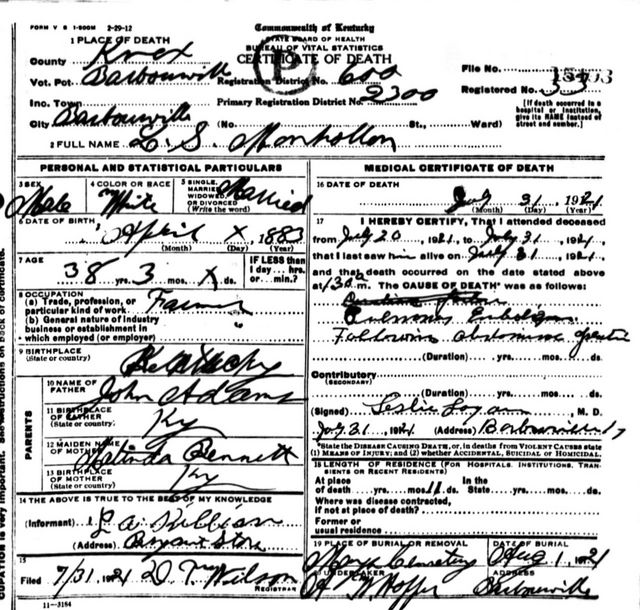 FORM V S 1-500M 2-29-12
Commonwealth of Kentucky
STATE BOARD OF HEALTH
BUREAU OF VITAL STATISTICS
CERTIFICATE OF DEATH
1 PLACE OF DEATH
County Knox
Vot. Pct. Barbourville Registration District No. 600
File No.
Registered No. 33
Inc. Town Primary Registration District No. 2300
City Barbourville (No. St., Ward)
[If death occurred in a hospital or institution, give its NAME instead of street and number.]
P
2 FULL NAME L. S. Monhollon
PERSONAL AND STATISTICAL PARTICULARS
3 SEX Male
4 COLOR OR RACE White
5 SINGLE, MARRIED, WIDOWED OR DIVORCED (Write the word) Married
6 DATE OF BIRTH April X 1883
(Month) (Day) (Year)
7 AGE 38 yrs. 3 mos. X ds.
IF LESS than 1 day... hrs. or min.?
8 OCCUPATION
(a) Trade, profession, or particular kind of work Farmer
(b) General nature of industry business or establishment in which employed (or employer)
9 BIRTHPLACE
(State or country) Kentucky
PARENTS
10 NAME OF FATHER John Adams
11 BIRTHPLACE OF FATHER (State or country) Ky
12 MAIDEN NAME OF MOTHER Malinda Bennett
13 BIRTHPLACE OF MOTHER (State or country) Ky
14 THE ABOVE IS TRUE TO THE BEST OF MY KNOWLEDGE
(Informant) Killian
(Address) Bryant Store
15
Filed 7/31 1921 Wilson
REGISTRAR
11-3184
MEDICAL CERTIFICATE OF DEATH
16 DATE OF DEATH
July 31, 1921
(Month) (Day) (Year)
17 I HEREBY CERTIFY, That I attended deceased
from July 20, 1921, to July 31, 1921,
that I last saw him alive on July 31, 1921,
and that death occurred on the date stated above
at m. The CAUSE OF DEATH* was as follows:
Pulmonary Embolism
Following abdominal operation
(Duration) yrs. mos. ds.
Contributory
(SECONDARY)
(Duration) yrs. mos. ds.
(Signed) Leslie Logan, M. D.
July 31, 1921 (Address) Barbourville Ky
*State the DISEASE CAUSING DEATH, or, in deaths from VIOLENT CAUSES state (1) MEANS OF INJURY; and (2) whether ACCIDENTAL, SUICIDAL or HOMICIDAL.
18 LENGTH OF RESIDENCE (FOR HOSPITALS, INSTITUTIONS, TRANSIENTS OR RECENT RESIDENTS)
At place of death yrs. mos. 11 ds. In the State yrs. mos. ds.
Where was disease contracted, if not at place of death?
Former or usual residence
19 PLACE OF BURIAL OR REMOVAL Cemetery
DATE OF BURIAL Aug 1, 1921
20 UNDERTAKER
ADDRESS Barbourville